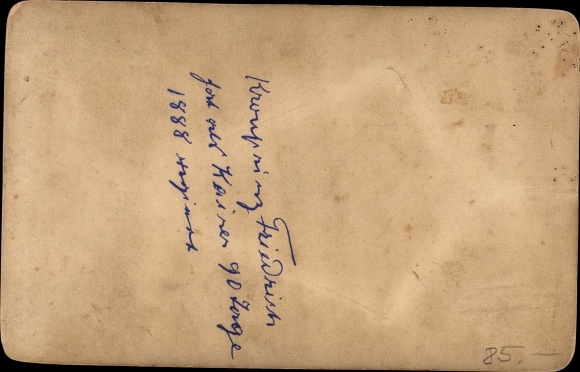 Kronprinz Friedrich
hat als Kaiser 90 Tage
1888 regiert
85.—